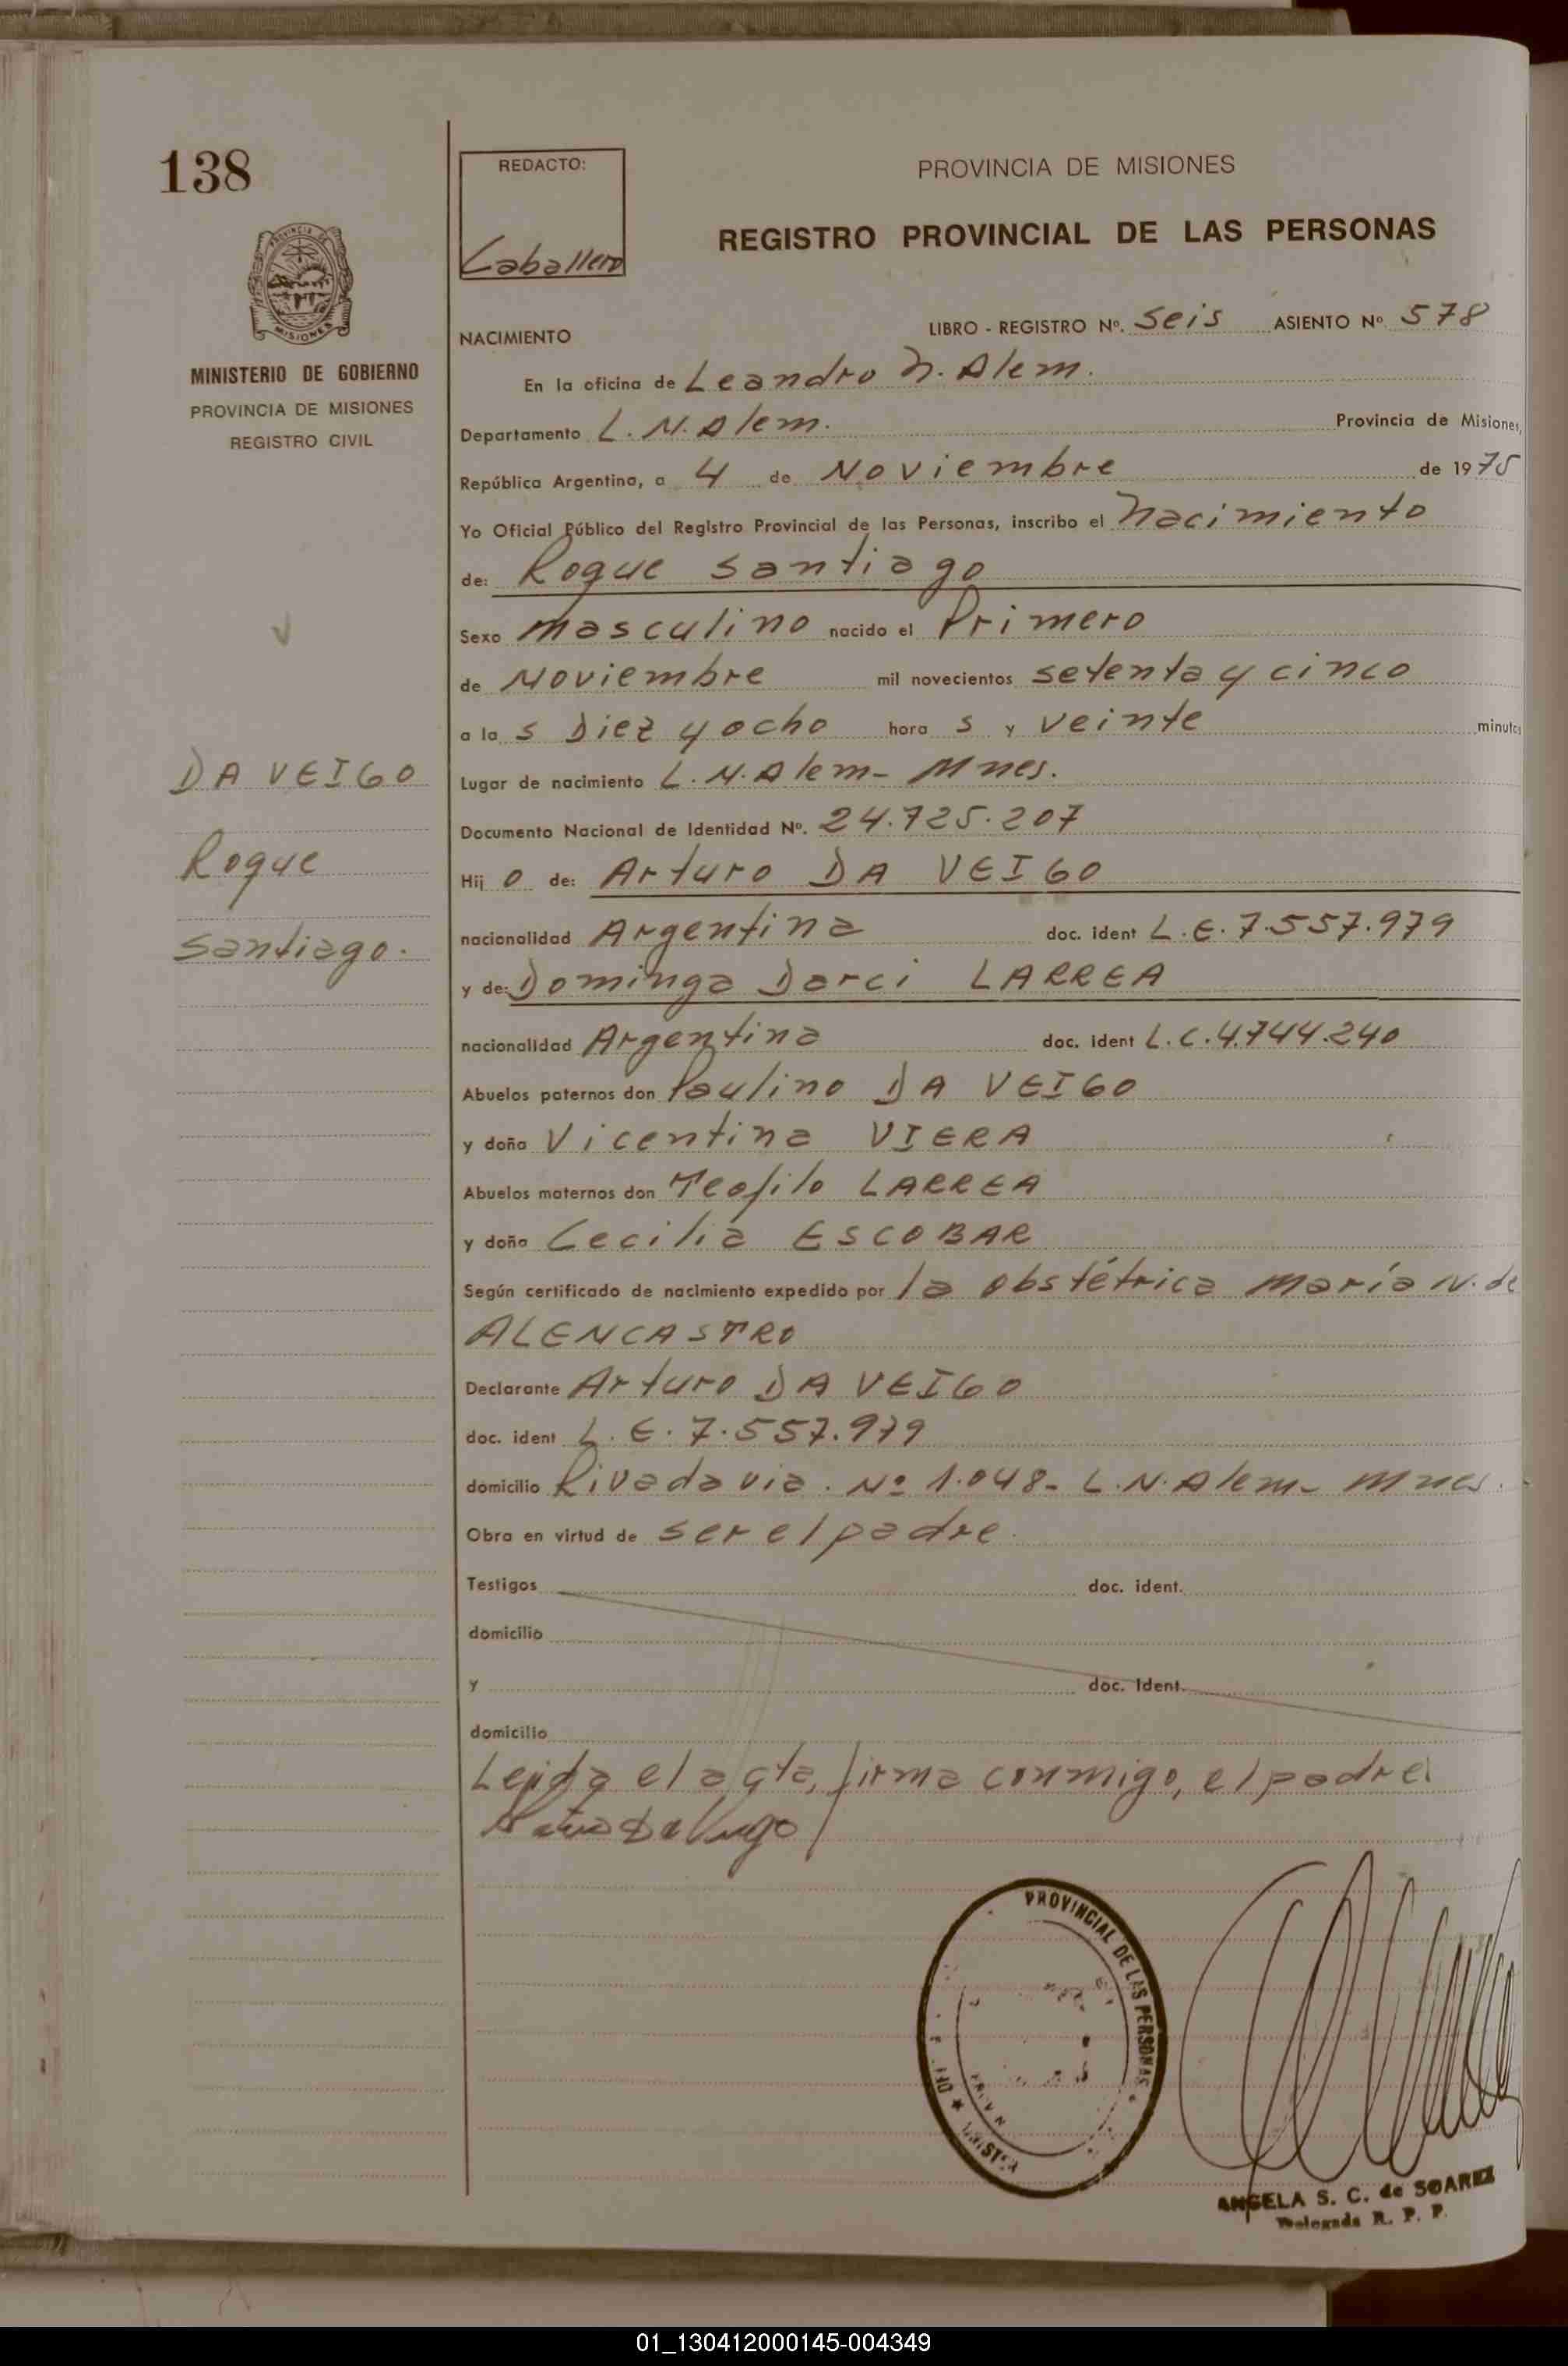 138
REDACTO:
Caballero
PROVINCIA DE MISIONES
REGISTRO PROVINCIAL DE LAS PERSONAS
PROVINCIA DE
MISIONES
MINISTERIO DE GOBIERNO
PROVINCIA DE MISIONES
REGISTRO CIVIL
NACIMIENTO LIBRO - REGISTRO Nº. Seis ASIENTO Nº 578
En la oficina de Leandro N. Alem.
Departamento L. N. Alem. Provincia de Misiones,
República Argentina, a 4 de Noviembre de 1975
Yo Oficial Público del Registro Provincial de las Personas, inscribo el Nacimiento
de: Roque Santiago
Sexo masculino nacido el Primero
de Noviembre mil novecientos setenta y cinco
a la s Diez y ocho hora s y veinte minutos
Lugar de nacimiento L. N. Alem - Mnes.
Documento Nacional de Identidad Nº. 24.725.207
Hij o de: Arturo DA VEIGO
nacionalidad Argentina doc. ident L. E. 7.557.979
y de: Dominga Darci LARREA
nacionalidad Argentina doc. ident L. C. 4.744.240
Abuelos paternos don Paulino DA VEIGO
y doña Vicentina VIERA
Abuelos maternos don Teofilo LARREA
y doña Cecilia ESCOBAR
Según certificado de nacimiento expedido por la obstétrica María N. de
ALENCASTRO
Declarante Arturo DA VEIGO
doc. ident L. E. 7.557.979
domicilio Rivadavia. Nº 1.048 - L. N. Alem - Mnes.
Obra en virtud de ser el padre.
Testigos doc. ident.
domicilio
y doc. Ident.
domicilio
Leída el acta, firma conmigo, el padre.
DA VEIGO
Roque
Santiago.
PROVINCIAL DE LAS PERSONAS
ANGELA S. C. de SOAREZ
Delegada R. P. P.
01_130412000145-004349